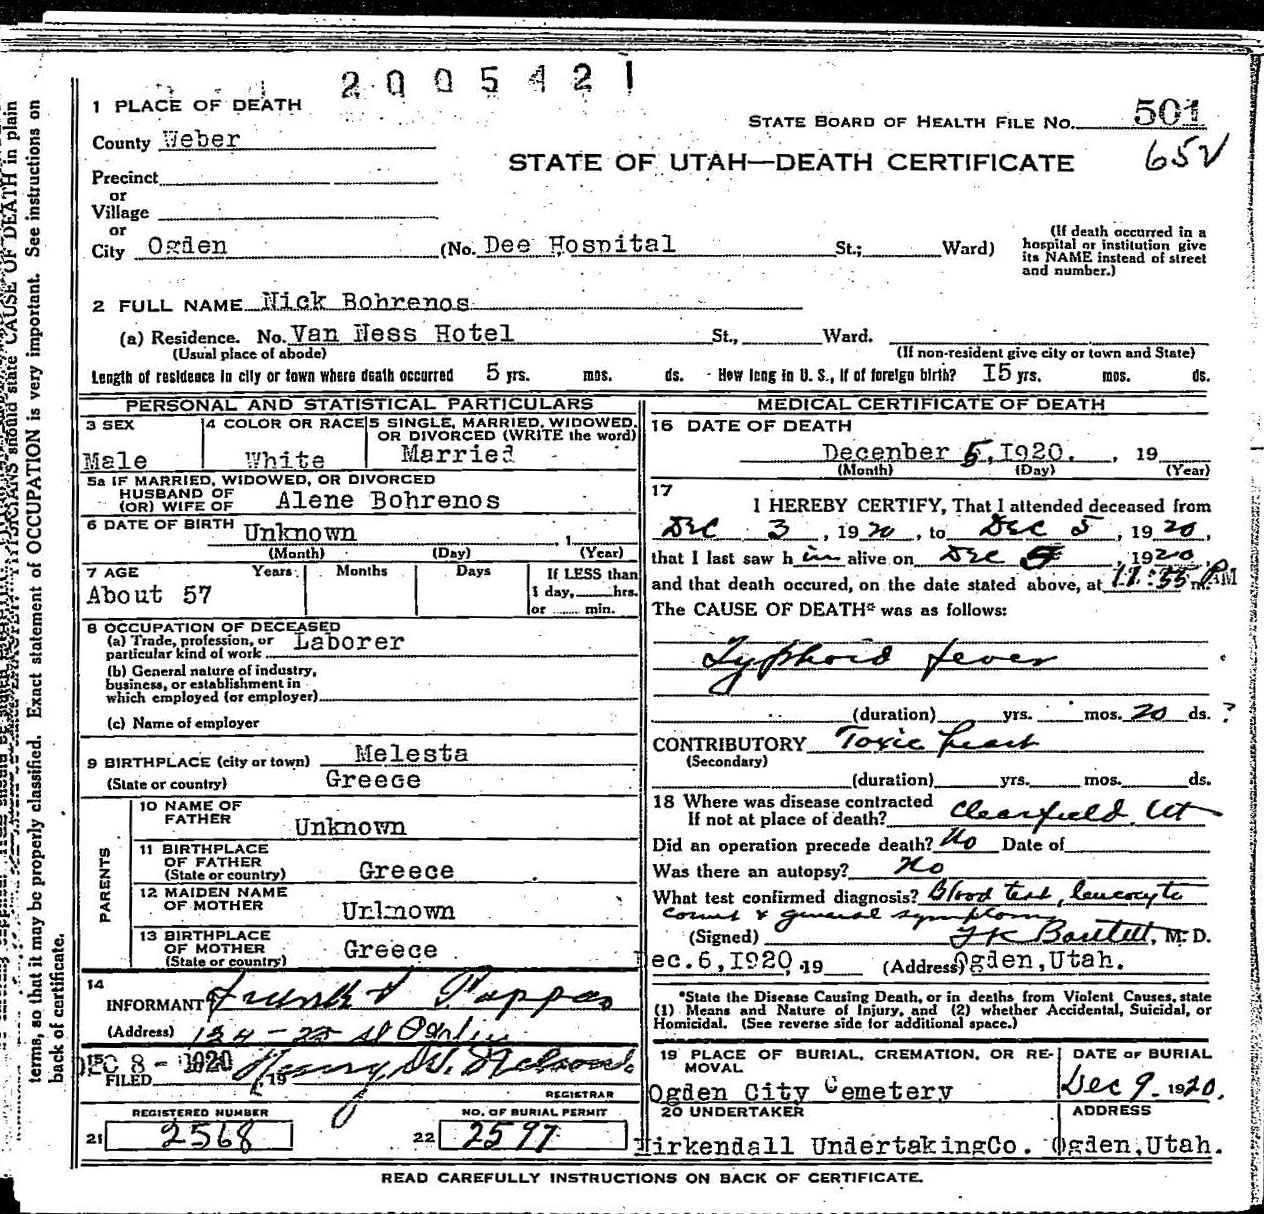 2005421
1 PLACE OF DEATH
STATE BOARD OF HEALTH FILE NO. 501
County Weber
65V
STATE OF UTAH—DEATH CERTIFICATE
Precinct
or
Village
or
City Ogden (No. Dee Hospital St.; Ward)
(If death occurred in a
hospital or institution give
its NAME instead of street
and number.)
2 FULL NAME Nick Bohrenos
(a) Residence. No. Van Ness Hotel St., Ward.
(Usual place of abode) (If non-resident give city or town and State)
Length of residence in city or town where death occurred 5 yrs. mos. ds. - How long in U. S., if of foreign birth? 15 yrs. mos. ds.
PERSONAL AND STATISTICAL PARTICULARS
3 SEX
Male
4 COLOR OR RACE
White
5 SINGLE, MARRIED, WIDOWED,
OR DIVORCED (WRITE the word)
Married
5a IF MARRIED, WIDOWED, OR DIVORCED
HUSBAND OF
(OR) WIFE OF Alene Bohrenos
6 DATE OF BIRTH Unknown , 1
(Month) (Day) (Year)
7 AGE Years Months Days If LESS than
About 57 1 day, hrs.
or min.
8 OCCUPATION OF DECEASED
(a) Trade, profession, or
particular kind of work Laborer
(b) General nature of industry,
business, or establishment in
which employed (or employer)
(c) Name of employer
9 BIRTHPLACE (city or town) Melesta
(State or country) Greece
PARENTS
10 NAME OF
FATHER Unknown
11 BIRTHPLACE
OF FATHER
(State or country) Greece
12 MAIDEN NAME
OF MOTHER Unknown
13 BIRTHPLACE
OF MOTHER
(State or country) Greece
14
INFORMANT Frank Pappas
(Address) 134 - 25 St Ogden
15 DEC 8 - 1920 Henry W. Nelson.
FILED , 19
REGISTRAR
REGISTERED NUMBER NO. OF BURIAL PERMIT
21 2568 22 2597
MEDICAL CERTIFICATE OF DEATH
16 DATE OF DEATH
December 5, 1920. , 19
(Month) (Day) (Year)
17
I HEREBY CERTIFY, That I attended deceased from
Dec 3, 1920, to Dec 5, 1920,
that I last saw h im alive on Dec 5, 1920,
and that death occured, on the date stated above, at 11:55 m. PM
The CAUSE OF DEATH* was as follows:
Typhoid fever
(duration) yrs. mos. 20 ds. ?
CONTRIBUTORY Toxic heart
(Secondary)
(duration) yrs. mos. ds.
18 Where was disease contracted
If not at place of death? Clearfield Ut
Did an operation precede death? No Date of
Was there an autopsy? No
What test confirmed diagnosis? Blood test, leucocyte
count & general symptoms
(Signed) Bartlett, M. D.
Dec. 6, 1920, 19 (Address) Ogden, Utah.
*State the Disease Causing Death, or in deaths from Violent Causes, state
(1) Means and Nature of Injury, and (2) whether Accidental, Suicidal, or
Homicidal. (See reverse side for additional space.)
19 PLACE OF BURIAL, CREMATION, OR RE-
MOVAL
Ogden City Cemetery
DATE OF BURIAL
Dec 9, 1920.
20 UNDERTAKER ADDRESS
Kirkendall Undertaking Co. Ogden, Utah.
READ CAREFULLY INSTRUCTIONS ON BACK OF CERTIFICATE.
PHYSICIANS should state CAUSE OF DEATH in plain
terms, so that it may be properly classified. Exact statement of OCCUPATION is very important. See instructions on
back of certificate.